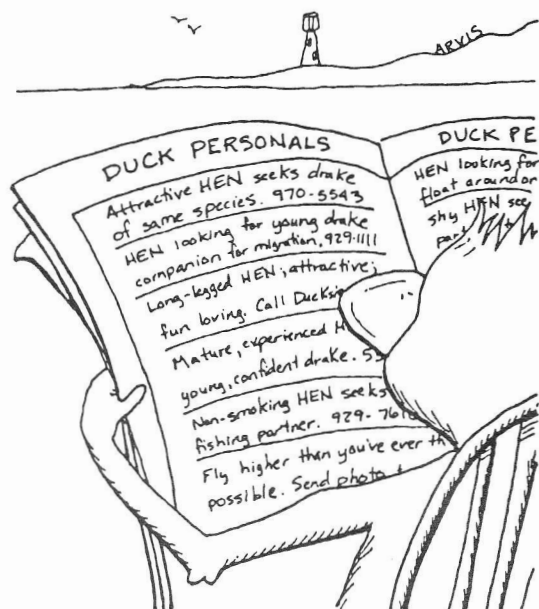 ARVIS
DUCK PERSONALS
Attractive HEN seeks drake
of same species. 970-5543
HEN looking for young drake
companion for migration, 929-1111
Long-legged HEN; attractive;
fun loving. Call
Mature, experienced
young, confident drake.
Non-smoking HEN seeks
fishing partner. 929-
Fly higher than you've ever
possible. Send photo
DUCK PE
HEN looking for
float around or
shy HEN see